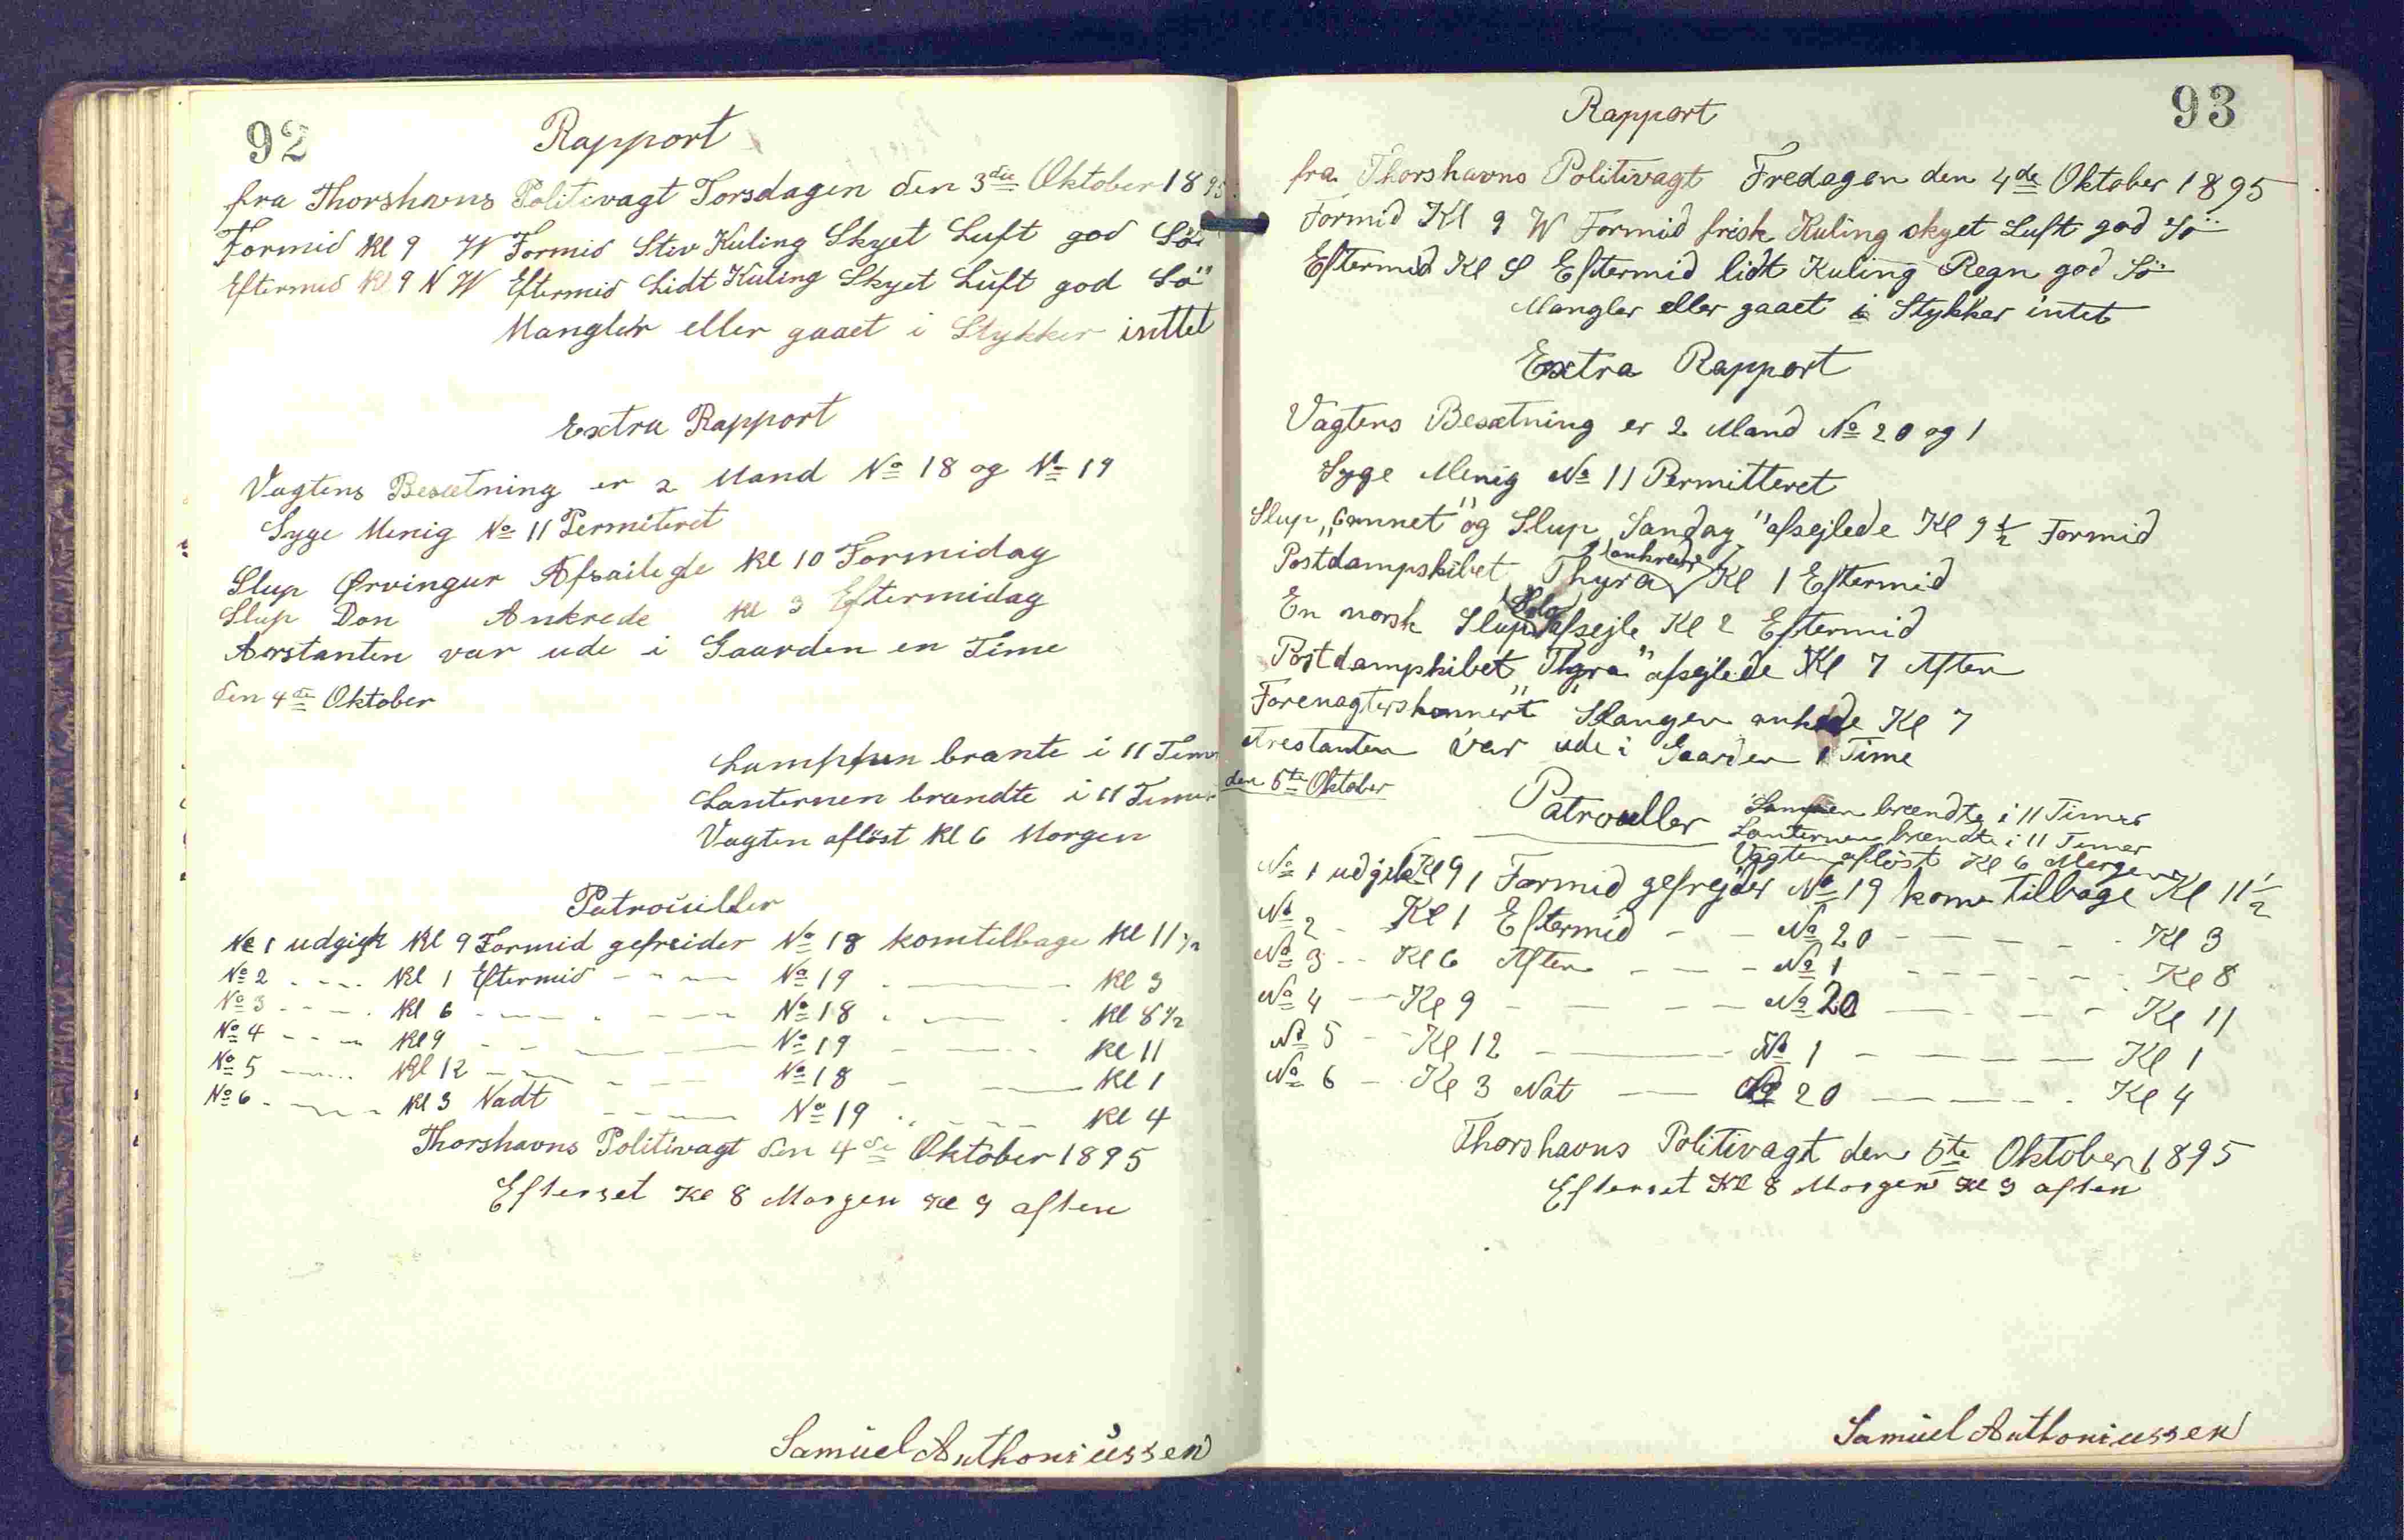 92
Rapport
fra Thorshavns Politivagt Torsdagen den 3die Oktober 1895
Formid Kl 9 W Formid Stiv Kuling Skyet Luft god Sö
Eftermid Kl 9 N W Eftermid Lidt Kuling Skyet Luft god Sö
Mangler eller gaaet i Stykker inttet
Extra Rapport
Vagtens Besætning er 2 Mand No 18 og No 19
Syge Menig No 11 Permiteret
Slup Ørvingur Afsailede kl 10 Formidag
Slup Don Ankrede kl 3 Eftermidag
Aorstanten var ude i Gaarden en Time
den 4de Oktober
Lamppen brante i 11 Timer
Lanternen brandte i 11 Timer
Vagten aflöst Kl 6 Morgen
Patrouiller
No 1 udgigk Kl 9 Formid gefreider No 18 komtilbage Kl 11 1/2
No 2 - - - Kl 1 Eftermid - - - No 19 - - - Kl 3
No 3 - - - Kl 6 - - - No 18 - - - Kl 8 1/2
No 4 - - - Kl 9 - - - No 19 - - - Kl 11
No 5 - - - Kl 12 - - - No 18 - - - Kl 1
No 6 - - - Kl 3 Nadt - - - No 19 - - - Kl 4
Thorshavns Politivagt den 4de Oktober 1895
Efterset Kl 8 Morgen Kl 9 aften
Samuel Anthoniussen
93
Rapport
fra Thorshavns Politivagt Fredagen den 4de Oktober 1895
Formid Kl 9 W Formid frisk Kuling skyet Luft god Sö
Eftermid Kl S Eftermid lidt Kuling Regn god Sö
Mangler eller gaaet i Stykker intet
Extra Rapport
Vagtens Besætning er 2 Mand No 20 og 1
Syge Menig No 11 Permitteret
Slup og Slup "Sandøy" afsejlede Kl 9 1/2 Formid
Postdampskibet Thyra ankrede Kl 1 Eftermid
En norsk Slup afsejle Kl 2 Eftermid
Postdampskibet "Thyra" afsejlede Kl 7 Aften
Kl 7
Arestanten var ude i Gaarden 1 Time
den 5te Oktober
Patrouller
Lampen brændte i 11 Timer
Lanternen brændte i 11 Timer
Vagten aflöst Kl 6 Morgen
No 1 udgik Kl 9 Formid gefrejder No 19 kom tilbage Kl 11 1/2
No 2 - Kl 1 Eftermid - - No 20 - - - Kl 3
No 3 - - Kl 6 Aften - - - No 1 - - - Kl 8
No 4 - - Kl 9 - - - No 20 - - - Kl 11
No 5 - Kl 12 - - - No 1 - - - Kl 1
No 6 - Kl 3 Nat - - No 20 - - - Kl 4
Thorshavns Politivagt den 5te Oktober 1895
Efterset Kl 8 Morgen Kl 9 aften
Samuel Anthoniussen